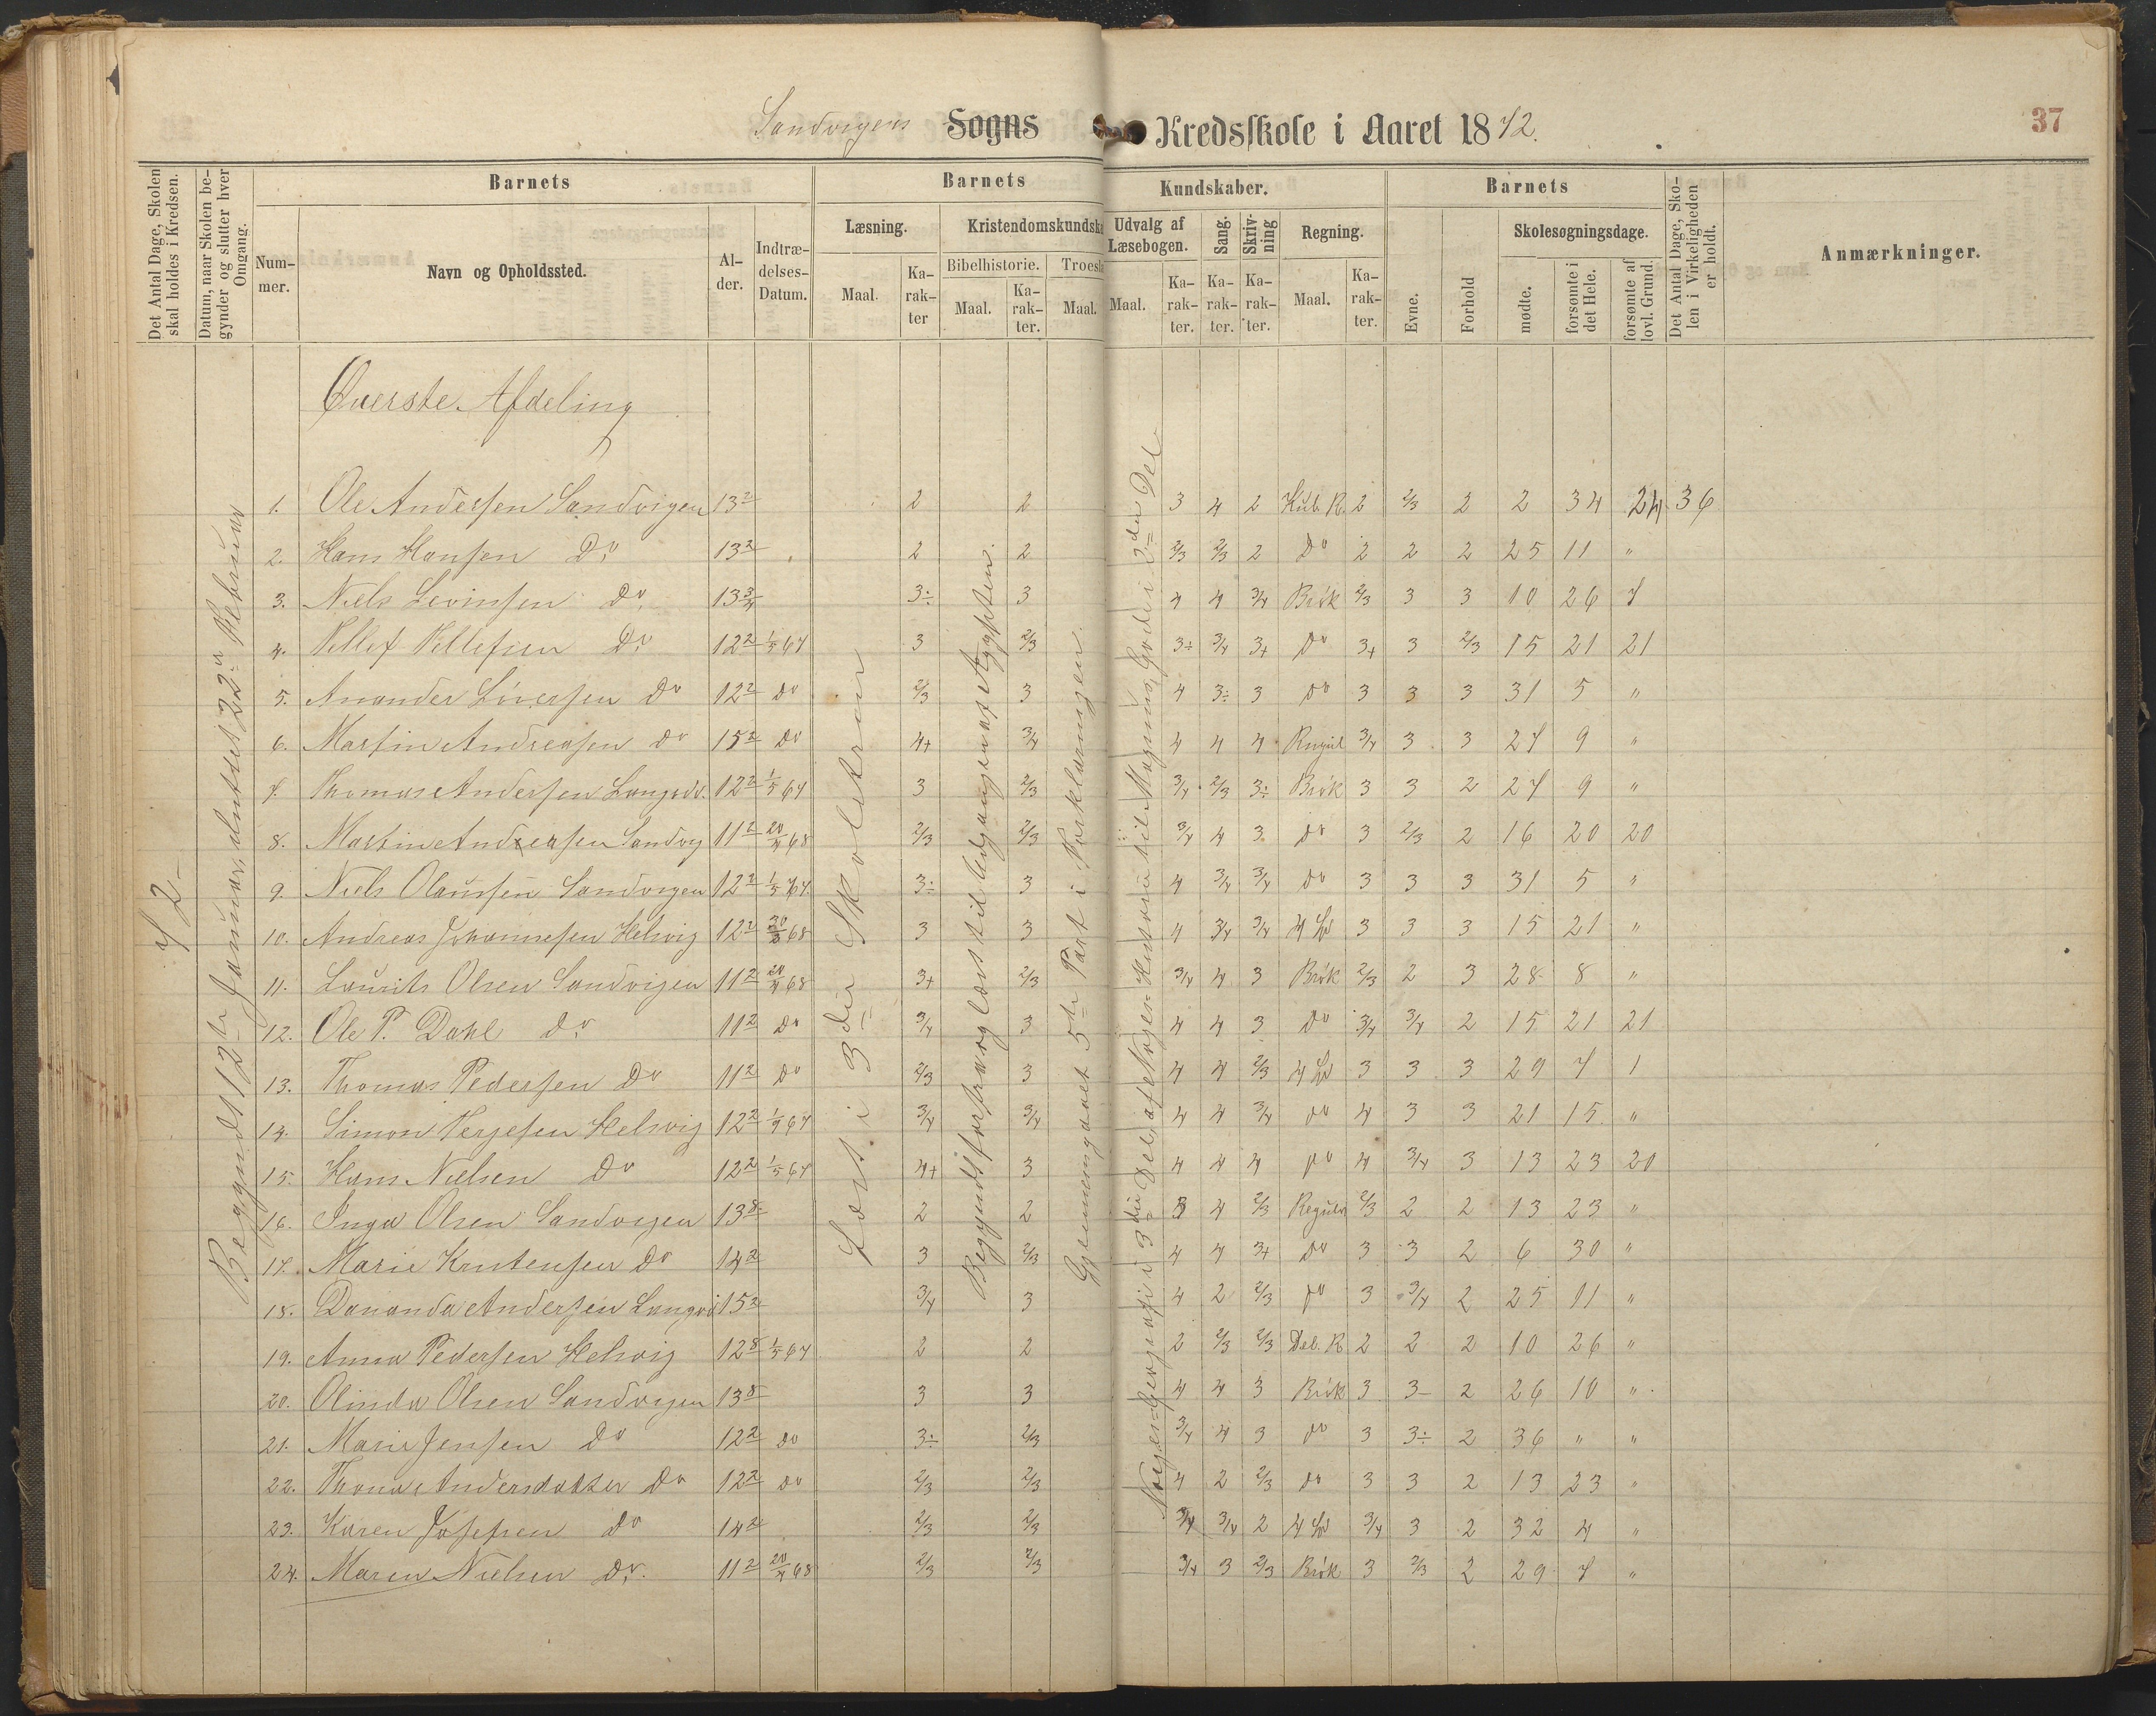 Sandvigens Sogns Kredsskole i Aaret 1872.
37
Det Antal Dage, Skolen skal holdes i Kredsen.
Datum, naar Skolen begynder og slutter hver Omgang.
Barnets
Nummer.
Navn og Opholdssted.
Alder.
Indtrædelses-Datum.
Barnets
Kundskaber.
Læsning.
Maal.
Karakter
Kristendomskundska
Bibelhistorie.
Maal.
Karakter.
Troesl
Maal.
Udvalg af Læsebogen.
Maal.
Karakter.
Sang.
Karakter.
Skrivning
Karakter.
Regning.
Maal.
Karakter.
Barnets
Evne.
Forhold
Skolesøgningsdage.
mødte.
forsømte i det Hele.
forsømte af lovl. Grund.
Det Antal Dage, Skolen i Virkeligheden er holdt.
Anmærkninger.
Øverste Afdeling
72
Begyndt 12te Januar, sluttet 22n Februar
Læst i 3die Skoletrin
Begyndt forfra og læst til Udgangen af Ægypten.
Gjennemgaaet 5te Part i Forklaringen.
3die Del, af Norges Historie til Magnus Gode i 2den Del
1. Ole Andersen Sandvigen 13 2 2 2 3 4 2 Kub. R. 2 2/3 2 2 34 24 36
2. Hans Hansen Do 13 2 " 2 2 2/3 2/3 2 Do 2 2 2 25 11 "
3. Niels Levinsen Do 13 3/4 3÷ 3 4 4 3/4 Brøk 2/3 3 3 10 26 7
4. Tellef Tellefsen Do 12 2 1/5 67 3 2/3 3÷ 3/4 3+ Do 3+ 3 2/3 15 21 21
5. Anander Do 12 2 Do 2/3 3 4 3÷ 3 Do 3 3 3 31 5 "
6. Martin Andreasen Do 15 2 Do 4+ 3/4 4 4 4 3/4 3 3 27 9 "
7. Thomas Andersen Langedv. 12 2 1/5 67 3 2/3 3/4 2/3 3÷ Brøk 3 3 2 27 9 "
8. Martin Andreasen Sandvig 11 2 20/4 68 2/3 2/3 3/4 4 3 Do 3 2/3 2 16 20 20
9. Niels Olaussen Sandvigen 12 2 1/5 67 3÷ 3 4 3/4 3/4 Do 3 3 3 31 5 "
10. Andreas Johannesen Helvig 12 2 68 3 3 4 3/4 3/4 4 3 3 3 15 21 "
11. Laurits Olsen Sandvigen 11 2 20/4 68 3+ 2/3 3/4 4 3 Brøk 2/3 2 3 28 8 "
12. Ole P. Dahl Do 11 2 Do 3/4 3 4 4 3 Do 3/4 3/4 2 15 21 21
13. Thomas Pedersen Do 11 2 Do 2/3 3 4 4 2/3 4 3 3 3 29 7 1
14. Simon Terjesen Helvig 12 2 67 3/4 3/4 4 4 3/4 Do 4 3 3 21 15 "
15. Hans Nielsen Do 12 2 1/5 67 4+ 3 4 4 4 Do 4 3/4 3 13 23 20
16. Inga Olsen Sandvigen 13 8 2 2 3 4 2/3 2/3 2 2 13 23 "
17. Marie Knutensen Do 14 2 3 2/3 4 4 3+ Do 3 3 2 6 30 "
18. Dananda Andersen Langedv 15 2 3/4 3 4 2 2/3 Do 3 3/4 2 25 11 "
19. Anna Pedersen Helvig 12 8 1/5 67 2 2 2 2/3 2/3 Del. R 2 2 2 10 26 "
20. Olinda Olsen Sandvigen 13 8 3 3 4 4 3 Brøk 3 3- 2 26 10 "
21. Marie Jensen Do 12 2 Do 3÷ 2/3 3/4 4 3 Do 3 3÷ 2 36 " "
22. Andersdatter Do 12 2 Do 2/3 2/3 4 2 2/3 Do 3 3 2 13 23 "
23. Karen Josefsen Do 14 2 2/3 2/3 3/4 3/4 2 4 3/4 3 2 32 4 "
24. Maren Nielsen Do. 11 2 20/4 68 2/3 2/3 3/4 3 2/3 Brøk 3 2/3 2 29 7 "